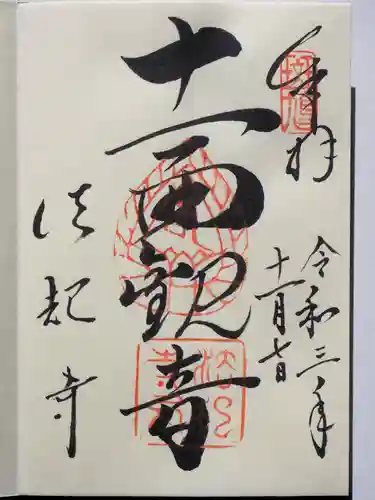 奉拝
令和三年
十一月七日
十一面観音
法起寺